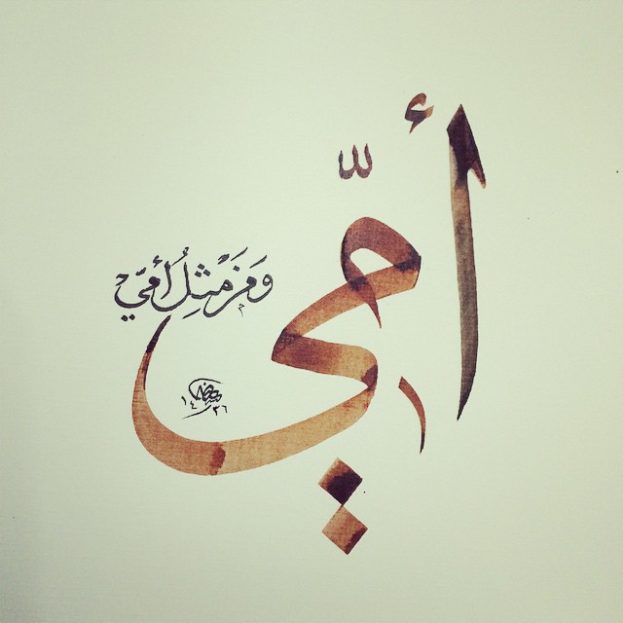 أمّي
وَمَن مِثْلُ أُمّي
١٤٣٦